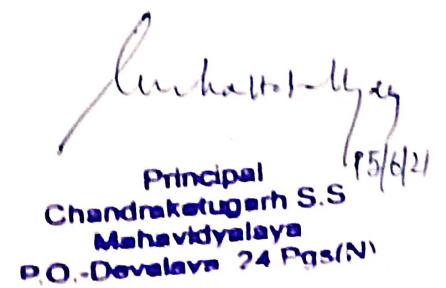 15/6/21
Principal
Chandraketugarh S.S
Mahavidyalaya
P.O.-Devalaya 24 Pgs(N)